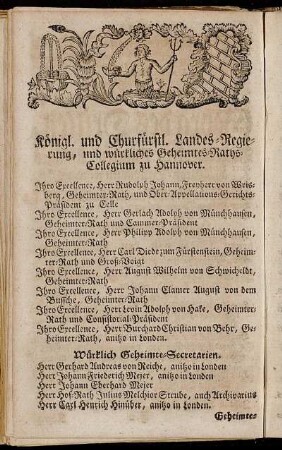 Königl. und Churfürstl. Landes-Regie-
rung, und würkliches Geheimtes-Raths-
Collegium zu Hannover.
Ihro Excellence, Herr Rudolph Johann, Freyherr von Wris-
berg, Geheimter-Rath, und Ober-Appellations-Gerichts-
Präsident zu Celle
Ihro Excellence, Herr Gerlach Adolph von Münchhausen,
Geheimter-Rath und Cammer-Präsident
Ihro Excellence, Herr Philipp Adolph von Münchhausen,
Geheimter-Rath
Ihro Excellence, Herr Carl Diede zum Fürstenstein, Geheim-
ter-Rath und Groß-Voigt
Ihro Excellence, Herr August Wilhelm von Schwicheldt,
Geheimter-Rath
Ihro Excellence, Herr Johann Clamer August von dem
Bussche, Geheimter-Rath
Ihro Excellence, Herr Levin Adolph von Hake, Geheimter-
Rath und Consistorial-Präsident
Ihro Excellence, Herr Burchard Christian von Behr, Ge-
heimter-Rath, anitzo in London.
Würklich Geheimte-Secretarien.
Herr Gerhard Andreas von Reiche, anitzo in London
Herr Johann Friederich Mejer, anitzo in London
Herr Johann Eberhard Mejer
Herr Hof-Rath Julius Melchior Strube, auch Archivarius
Herr Carl Henrich Hinüber, anitzo in London.
Geheimte-